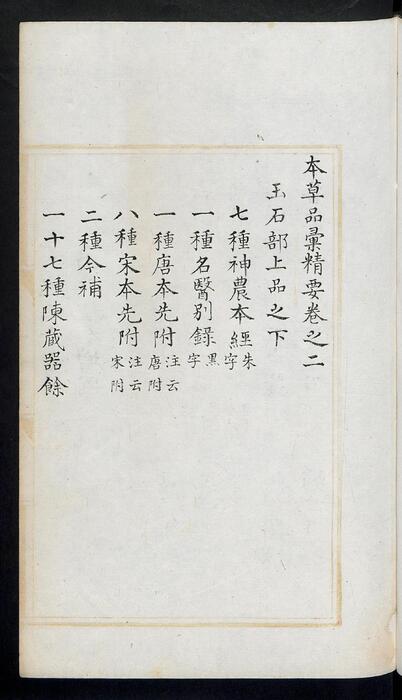 本草品彙精要卷之二
玉石部上品之下
七種神農本經朱字
一種名醫別錄黑字
一種唐本先附注云唐附
八種宋本先附注云宋附
二種今補
一十七種陳藏器餘